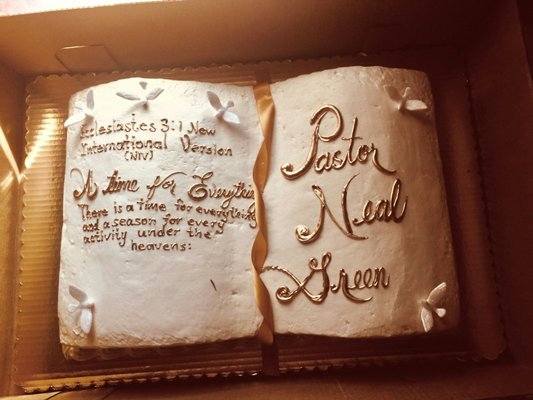 Ecclesiastes 3:1 New
International Version
(NIV)
A time for Everything
There is a time for everything
and a season for every
activity under the
heavens:
Pastor
Neal
Green